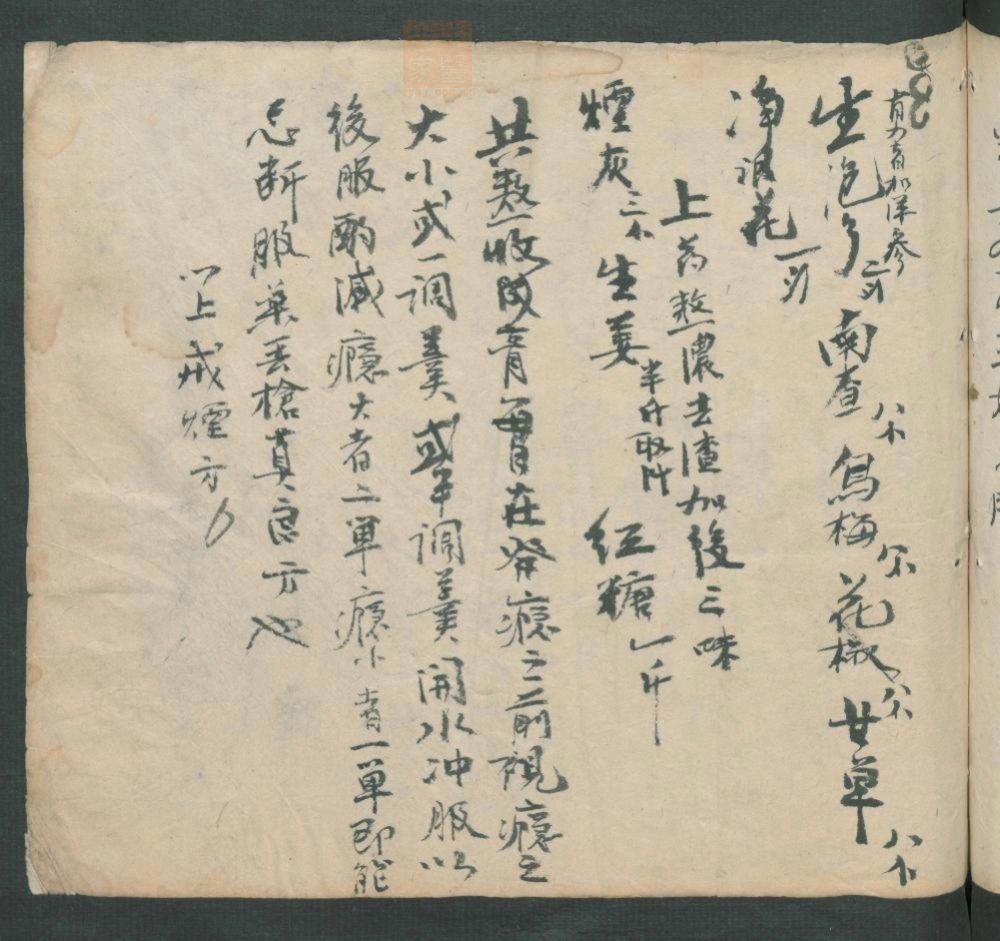 有力者加洋參
生芪 南查 烏梅 花椒 甘草
淨銀花
上药熬濃去渣加後三味
煙灰 生姜 半斤取汁 紅糖 一斤
共熬收成膏 在發癮之前視癮之
大小或一調羹或半調羹開水冲服以
後服酌減癮大者二單癮小者一單即能
忌斷服藥丟槍真良方也
以上戒煙方